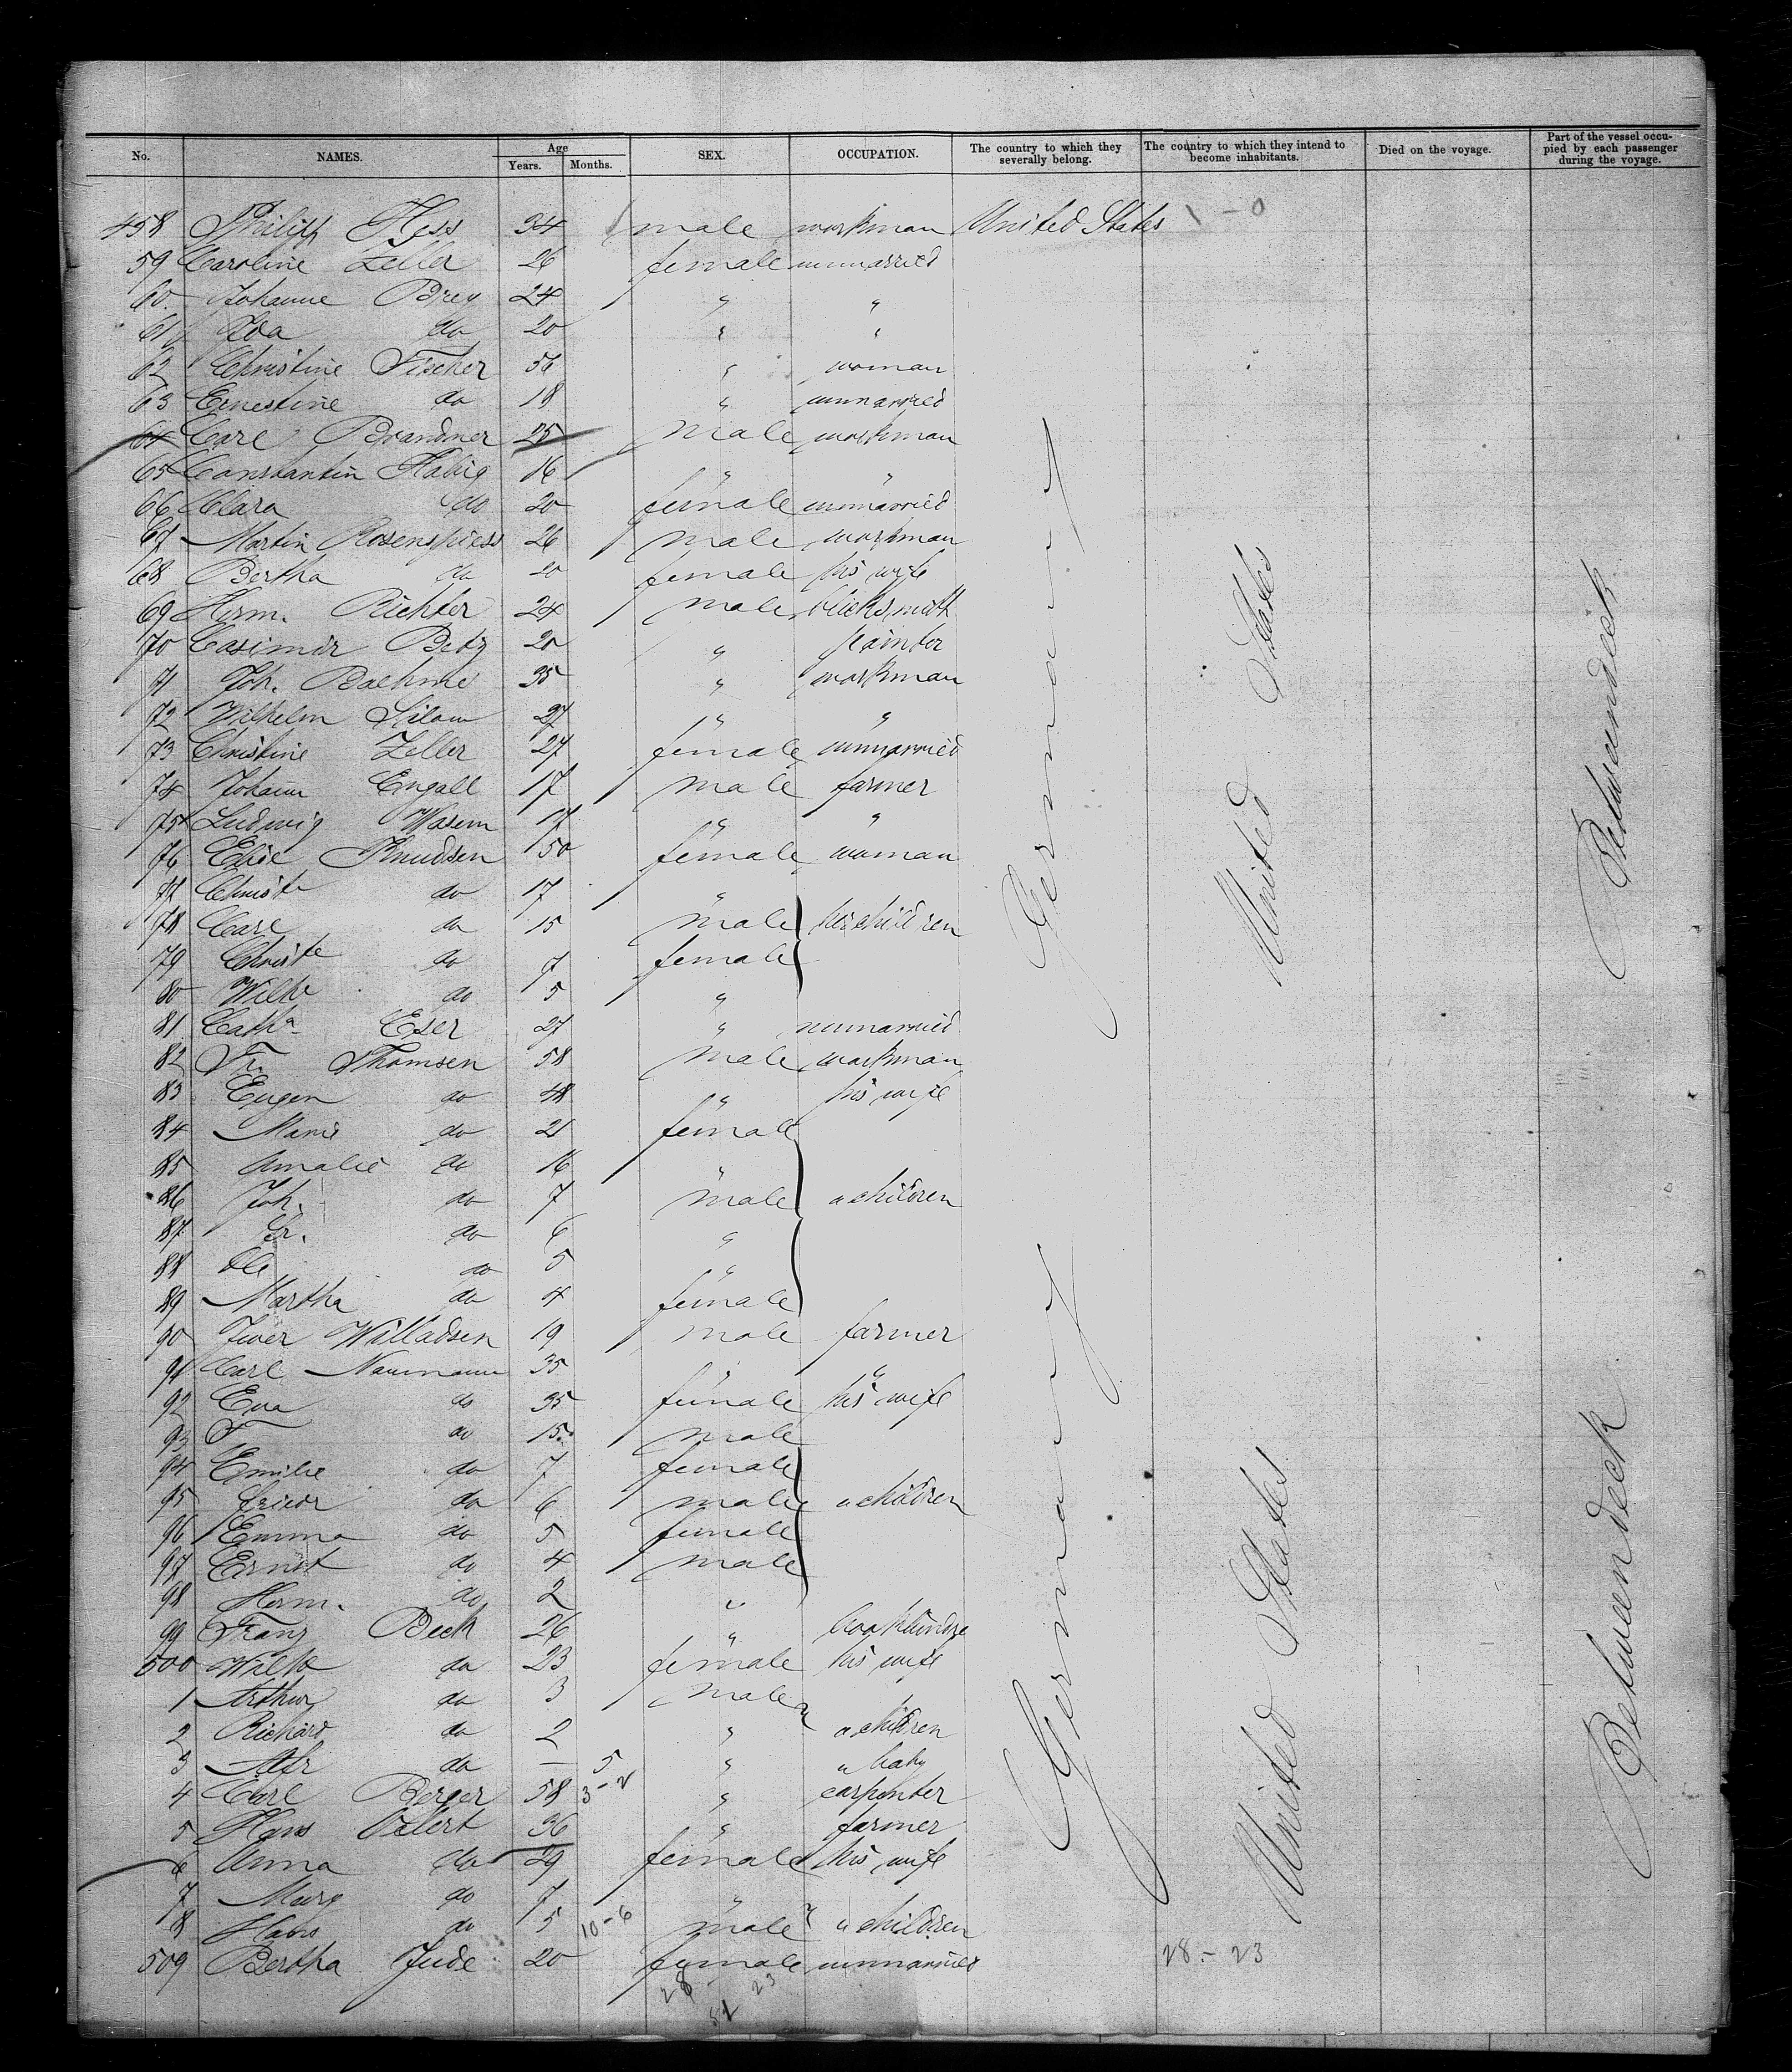 No. NAMES. Age Years. Months. SEX. OCCUPATION. The country to which they severally belong. The country to which they intend to become inhabitants. Died on the voyage. Part of the vessel occupied by each passenger during the voyage.
458 Philipp Hess 34 male workman United States 1-0
59 Caroline Zeller 26 female unmarried
60 Johanne Brey 24 " "
61 Ida do 20 " "
62 Christine Fischer 56 " woman
63 Ernestine do 18 " unmarried
64 Carl Brandner 25 male workman
65 Constantin Habig 16 " "
66 Clara do 20 female unmarried
67 Martin Rosenspiess 26 male workman
68 Bertha do 20 female his wife
69 Herm. Richter 24 male blacksmith
70 Casimir Betz 20 " painter
71 Joh. Boehme 35 " workman
72 Wilhelm 27 " "
73 Christine Zeller 27 female unmarried
74 Johann Engall 17 male farmer
75 Ludwig Wasem 17 " "
76 Elise Knudsen 50 female woman
77 Christe do 17 "
78 Carl do 15 male her children
79 Christe do 7 female
80 Wilhe do 5 "
81 Catha Eser 27 " unmarried
82 Fr. Thomsen 58 male workman
83 Eugen do 48 " his wife
84 Marie do 21 female
85 Amalie do 16 "
86 Joh. do 7 male " children
87 Gr. do 6 "
88 Ole do 5 "
89 Martha do 4 female
90 Iwer Willadsen 19 male farmer
91 Carl Naumann 35 " "
92 Eva do 35 female his wife
93 F do 15 male
94 Emilie do 7 female
95 Friedr do 6 male " children
96 Emma do 5 female
97 Ernst do 4 male
98 Herm. do 2 "
99 Franz Beck 26 "
500 Wilhe do 23 female his wife
1 Arthur do 3 male
2 Richard do 2 " " children
3 Alfr do — 5 " " baby
4 Carl Berger 58 3-2 " carpenter
5 Hans 36 " farmer
6 Anna do 29 female his wife
7 Marg do 7 "
8 Hans do 5 10-6 male " children
509 Bertha Jude 20 female unmarried 28-23
28 23
51
Germany
United States
Betweendeck
Germany
United States
Betweendeck